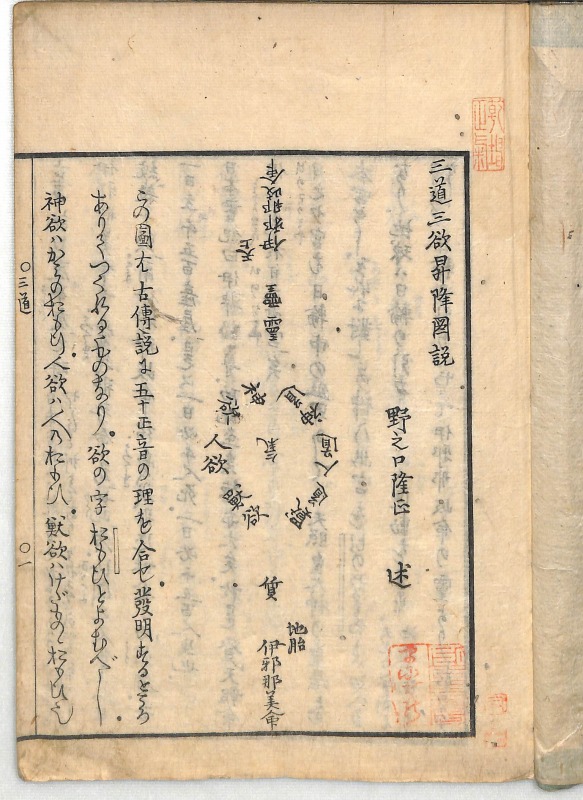 三道三欲昇降図説
野之口隆正 述
伊邪那岐命
天上
霊
神欲
神道
人道
人欲
気
獣欲
獣道
質
地胎
伊邪那美命
この圖は古傳説に五十正音の理を合せ發明するところ
ありてつくれるものなり。欲の字おもひとよむべし
神欲ハかみのおもひ。人欲ハ人のおもひ。獣欲ハけだものゝおもひ也
〇三道
〇一